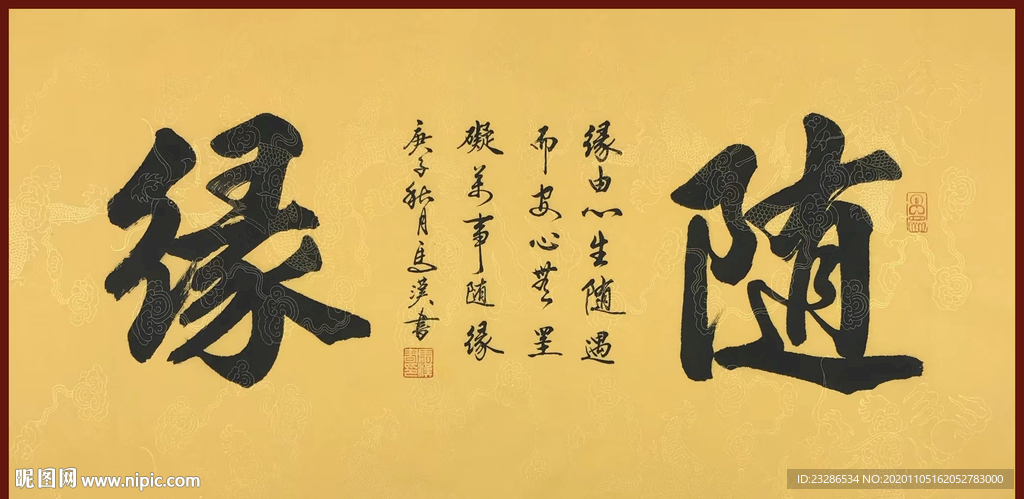 随
缘由心生随遇
而安心无罣
礙万事随缘
庚子秋月马汉书
缘
昵图网 www.nipic.com
ID:23286534 NO:20201105162052783000